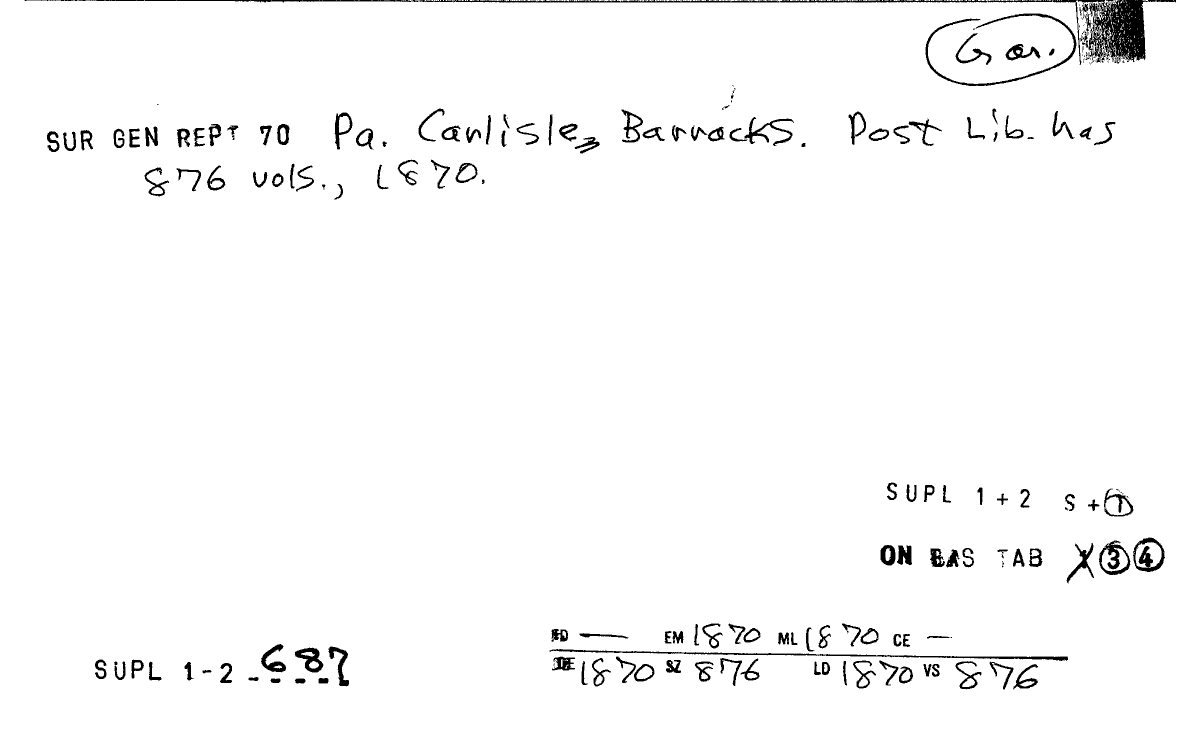 Gar.
SUR GEN REPT 70 Pa. Carlisle, Barracks. Post Lib. has
876 vols., 1870.
SUPL 1+2 S+T
ON BAS TAB X 3 4
FD — EM 1870 ML 1870 CE —
SUPL 1-2 687
DE 1870 SZ 876 LD 1870 VS 876